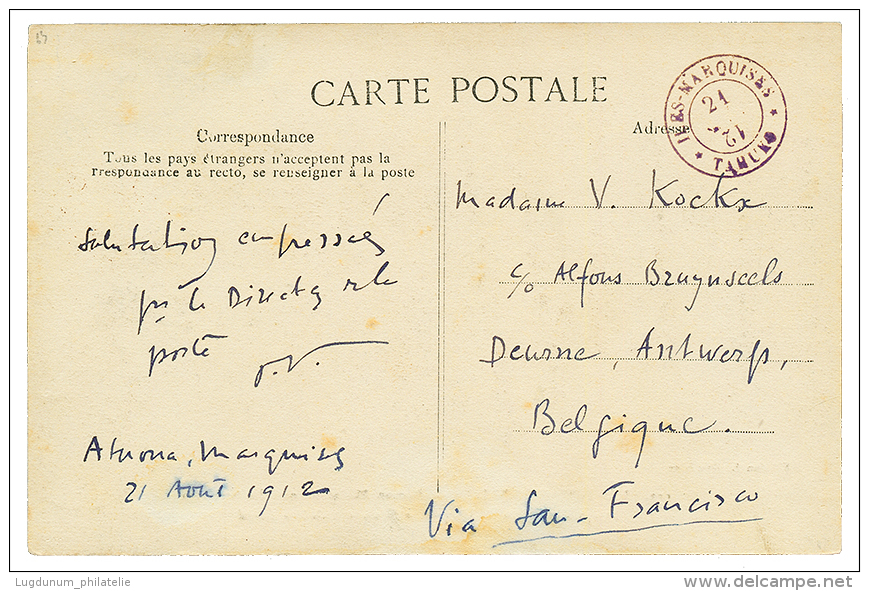 CARTE POSTALE
Correspondance
Tous les pays étrangers n'acceptent pas la
rrespondance au recto, se renseigner à la poste
Adresse
ILES-MARQUISES
21
TAHUKU
Salutations empressés
par le Directeur de la
poste
Atuona, Marquises
21 Août 1912
Madame V. Kockx
c/o Alfons Bruynseels
Deurne, Antwerp,
Belgique.
Via San-Francisco
Lugdunum_philatelie
www.delcampe.net